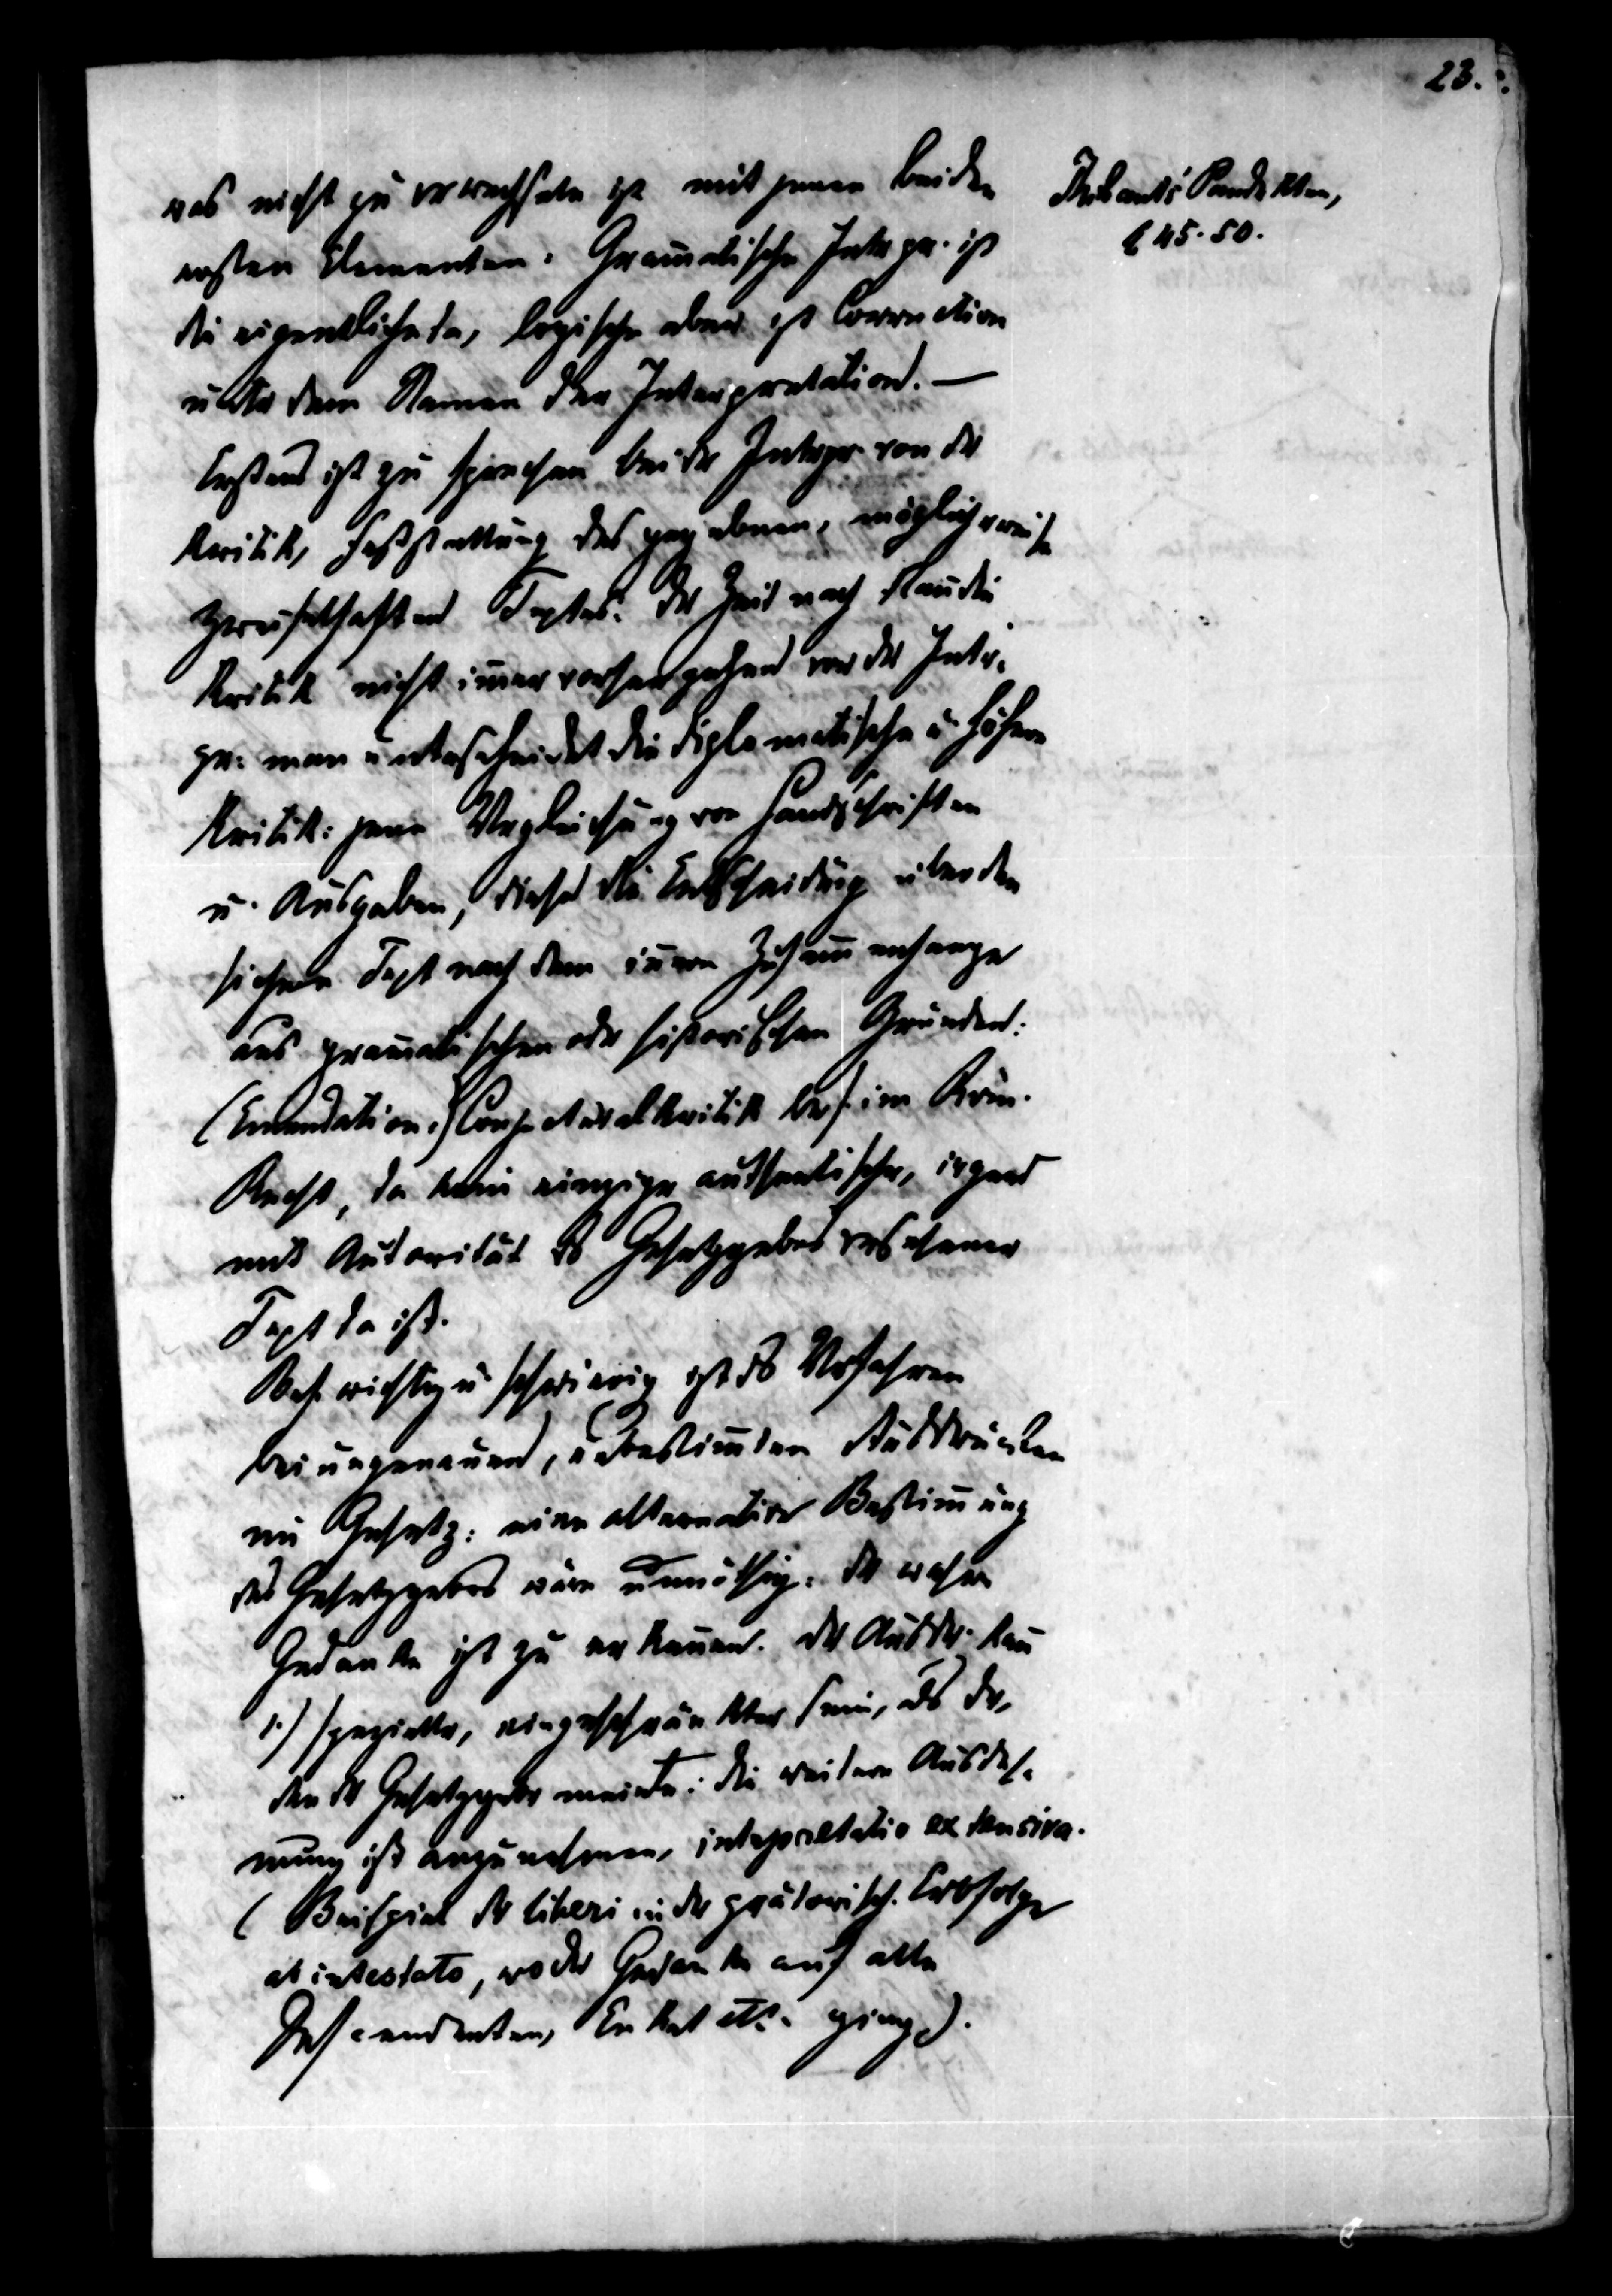 23.
was nicht zu verwechseln ist mit jenen beiden
ersten Elementen. Gramatische Interpr. ist
die eigentlichste, logische aber ist Correction
unter dem Namen der Interpretation. —
Erstens ist zu sprechen bei der Interpr. von der
Kritik, Feststellung des gegebenen, möglicherweise
zweifelhaften Textes. Der Zeit nach
Kritik nicht imer vorhergehend vor der Inter-
pr. man unterscheidet die diplomatische u. höhere
Kritik: jene Vergleichung von Handschriften
u. Ausgaben, diese die Entscheidung über den
sichern Text nach dem innern Zusammenhange
aus gramatischen oder historischen Gründen:
(Emendation.) Conjecturalkritik bes. im Röm.
Recht, da kein einziger authentischer, irgend
mit Autorität des Gesetzgebers versehener
Text da ist.
Bes. wichtig u. schwierig ist das Verfahren
bei ungenauen, unbestimten Ausdrücken
im Gesetz: eine alternative Bestimung
des Gesetzgebers wäre unnöthig. der wahre
Gedanke ist zu erkennen. der Ausdr. kan
1.) spezieller, eingeschränkter sein, als der,
den der Gesetzgeber meinte: die weitere Ausdeh-
nung ist anzunehmen, interpretatio extensiva.
(Beispiel der liberi in der prätorisch. Erbfolge
ab intestato, wo der Gedanke auf alle
Descendenten, Enkel etc. ging).
Thibauts' Pandekten,
§ 45. 50.